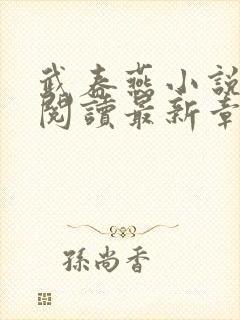 武春燕小說
閱讀最新章
孫尚香